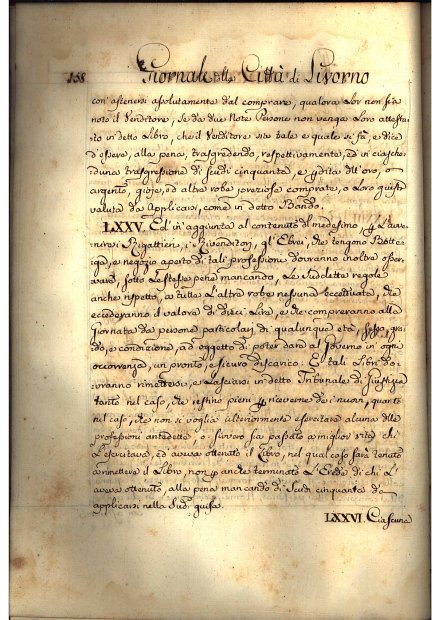 158 Giornale della Città di Livorno
con' astenersi assolutamente dal comprare, qualora Lor non sia
noto il Venditore, se da due Note Persone non venga Loro attesta-
to in detto Libro, che il Venditore sia tale e quale si fà, e dice
d'essere, alla pena, trasgredendo, respettivamente, ed in ciasche-
duna trasgressione di scudi cinquanta, e perdita dell'oro, o
argento, gioje, ed altre robe preziose comprate, o Loro giusta
valuta da Applicarsi, come in detto Bando.
LXXV. Ed in' aggiunta al contenuto del medesimo, p l'avve-
nire i Rigattieri, i Rivenditori, gl'Ebrei, che tengono Botte-
ga, e negozio aperto di tali professioni dovranno inoltre osser-
vare, sotto L'istesse pene mancando, Le Suddette regole
anche rispetto, a tutte L'altre robe nessuna eccettuata, che
eccederanno il valore di dieci Lire, e che compreranno alla
Giornata da persone particolari di qualunque età, sesso, gra-
do, e condizione, ad oggetto di poter dare al Governo in ogni
occorrenza, un pronto, e sicuro discarico: E tali Libri do-
vranno rimettersi, e Lasciarsi in detto Tribunale di Giustizia
tanto nel caso, che restino pieni p riceverne de i nuovi, quanto
nel caso, che non si voglia ulteriormente esercitare alcuna delle
professioni antedette, o sivvero sia passato a miglior vita chi
L'esercitava, ed aveva ottenuto il Libro, nel qual caso sarà tenuto
a rimettere il Libro, non p anche terminato L'Erede di chi L'
aveva ottenuto, alla pena mancando di Scudi cinquanta da
applicarsi nella Sudª guisa.
LXXVI. Ciascuna